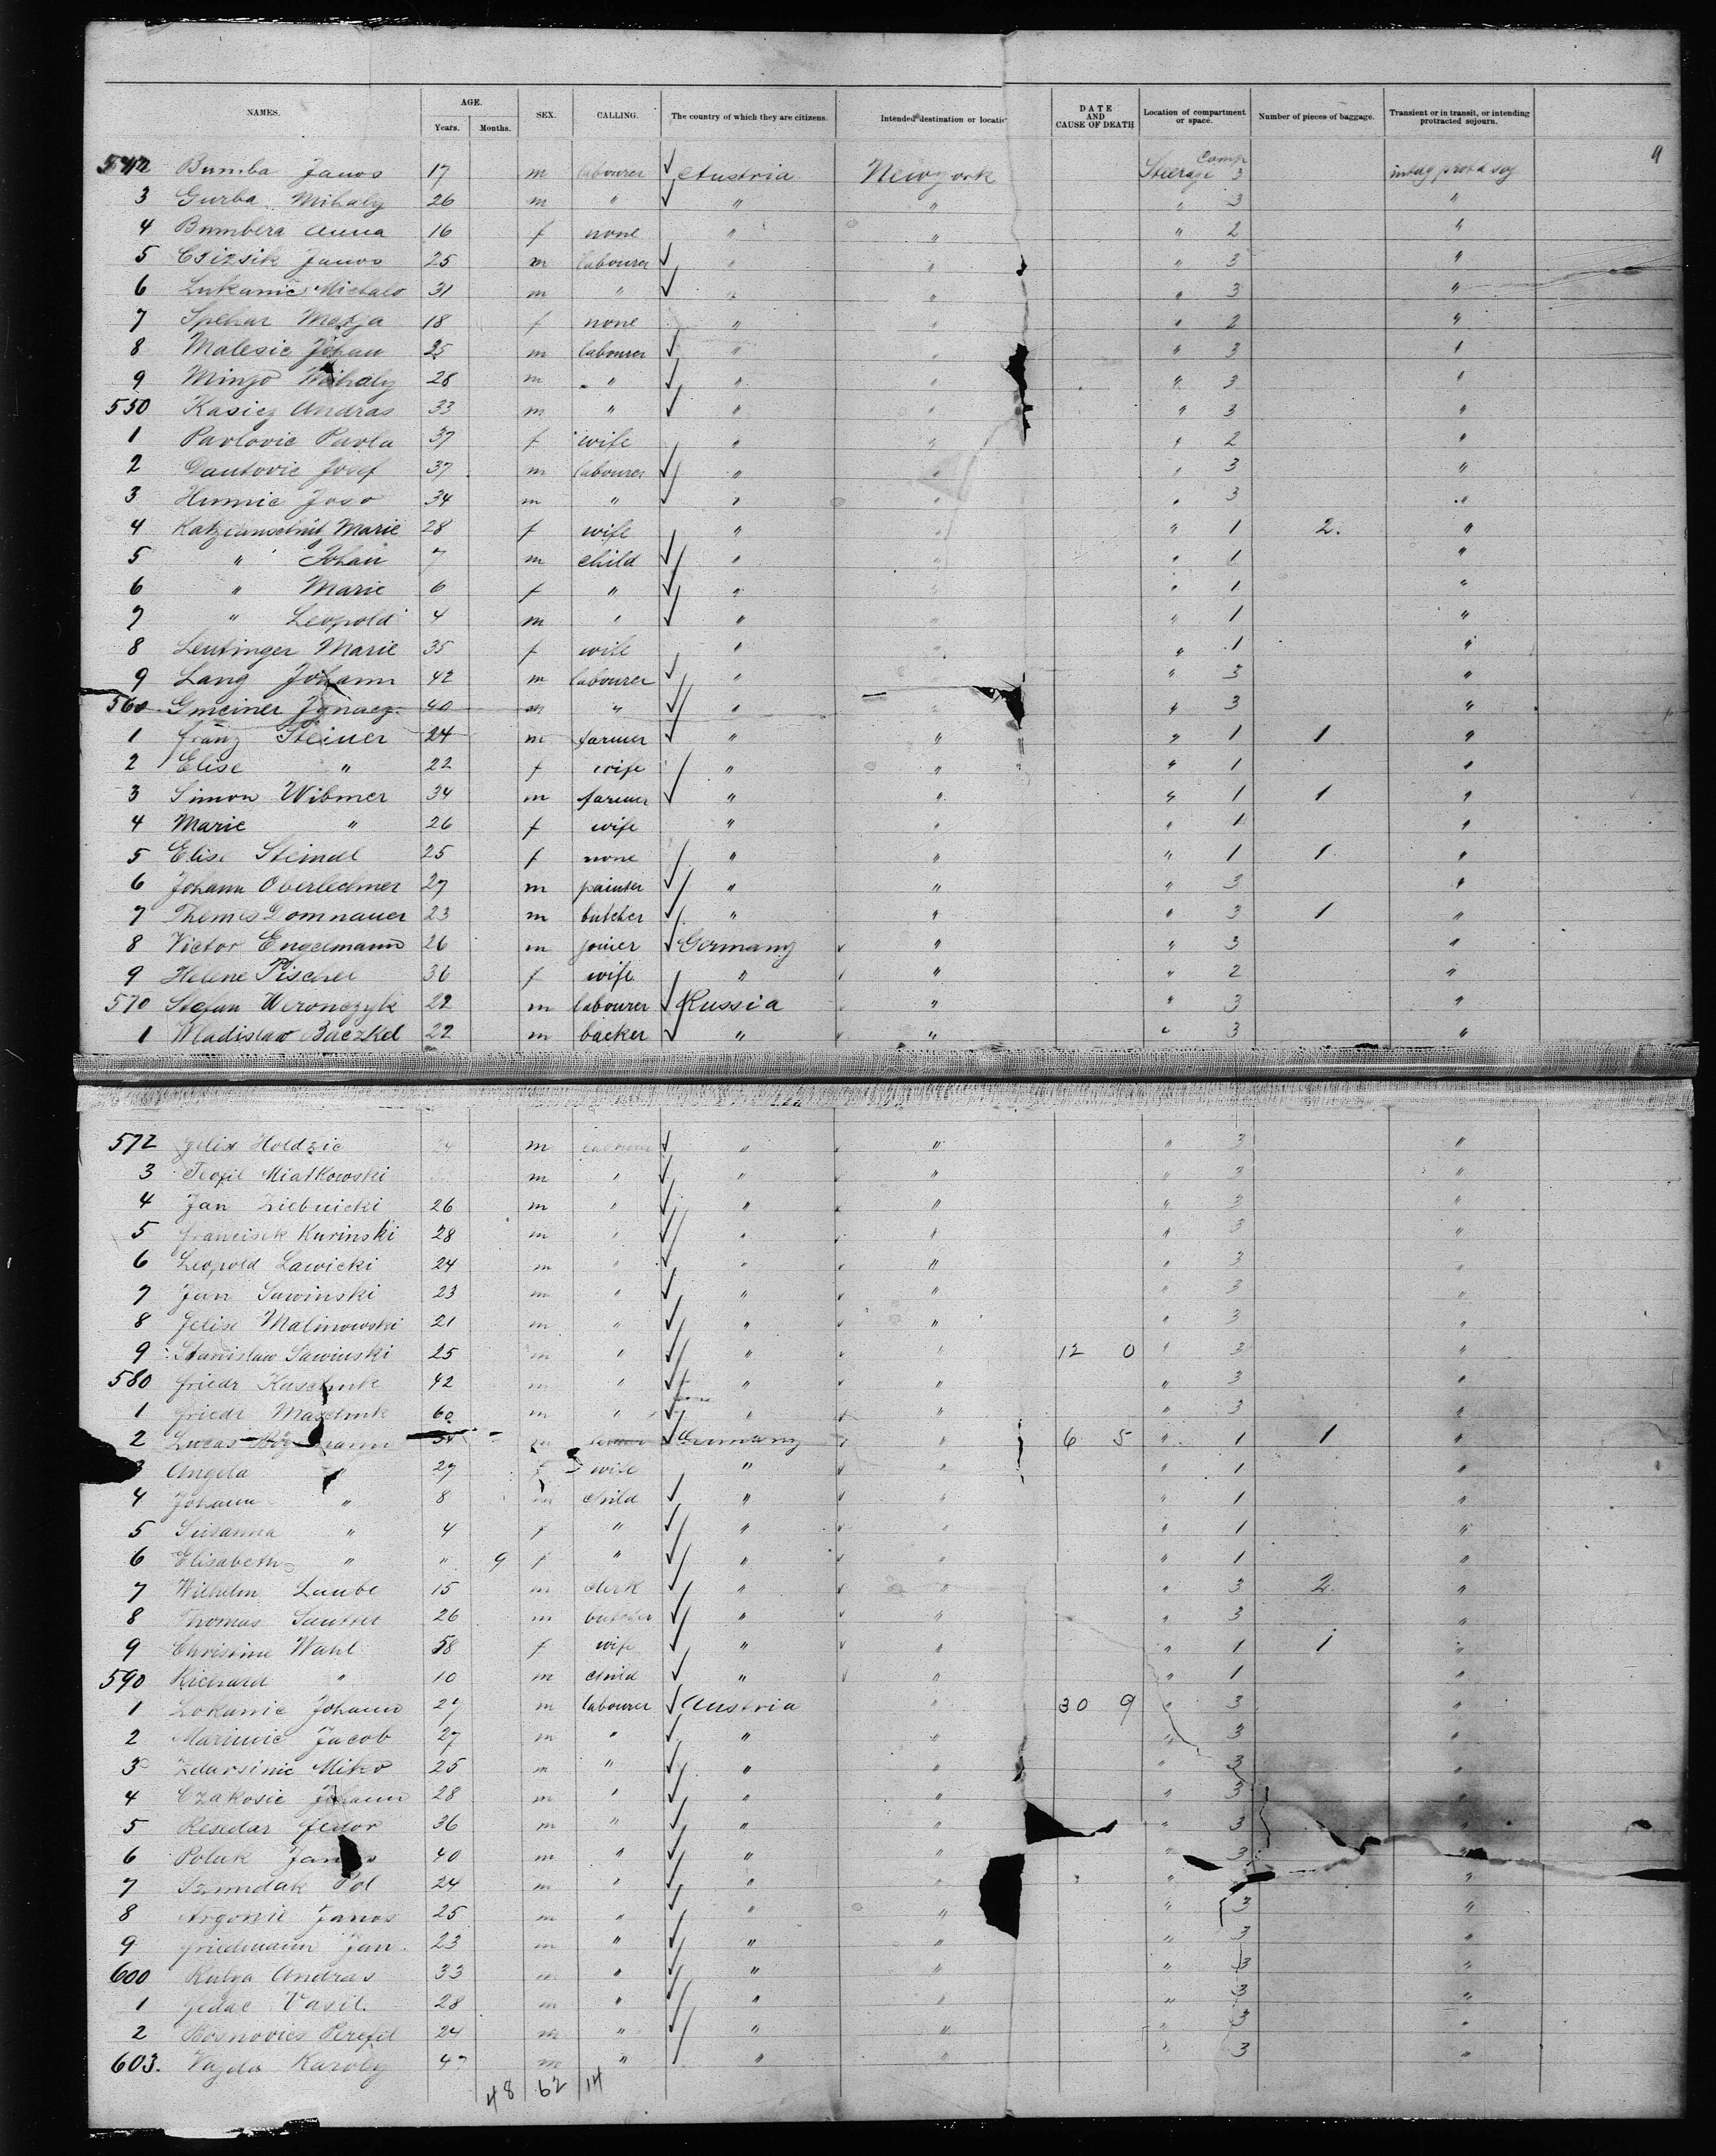 NAMES. AGE. Years. Months. SEX. CALLING. The country of which they are citizens. Intended destination or locatio DATE AND CAUSE OF DEATH Location of compartment or space. Number of pieces of baggage. Transient or in transit, or intending protracted sojourn.
542 Bumba Janos 17 m labourer ✓ Austria New york Steerage Comp 3
3 Gurba Mihaly 26 m " ✓ " " " 3 "
4 Bumbera Anna 16 f none " " " 2 "
5 Csizsik Janos 25 m labourer ✓ " " " 3 "
6 Lukanic Michalo 31 m " ✓ " " " 3 "
7 Spehar Marja 18 f none " " " 2 "
8 Malesic Johan 25 m labourer ✓ " " " 3 "
9 Minjo Mihaly 28 m " ✓ " " " 3 "
550 Kasicz Andras 33 m " ✓ " " " 3 "
1 Pavlovic Pavla 37 f wife " " " 2 "
2 Dautovic Josef 37 m labourer ✓ " " " 3 "
3 Humic Joso 34 m " ✓ " " " 3 "
4 Marie 28 f wife " " " 1 2. "
5 " Johan 7 m child ✓ " " " 1 "
6 " Marie 6 f " ✓ " " " 1 "
7 " Leopold 4 m " ✓ " " " 1 "
8 Leutinger Marie 35 f wife " " " 1 "
9 Lang Johann 42 m labourer ✓ " " " 3 "
560 Gmeiner Ignacz. 40 m " ✓ " " " 3 "
1 Franz Steiner 24 m farmer ✓ " " " 1 1 "
2 Elise " 22 f wife " " " 1 "
3 Simon Wibmer 34 m farmer ✓ " " " 1 1 "
4 Marie " 26 f wife " " " 1 "
5 Elise Steindl 25 f none " " " 1 1 "
6 Johann Oberlechner 27 m painter ✓ " " " 3 "
7 Domnauer 23 m butcher ✓ " " " 3 1 "
8 Victor Engelmann 26 m joiner ✓ Germany " " 3 "
9 Helene Fischer 36 f wife " " " 2 "
570 Stefan Weronczyk 22 m labourer ✓ Russia " " 3 "
1 Wladislaw Baczkel 22 m backer ✓ " " " 3 "
572 Felix Holdzic 24 m labourer ✓ " " " 3 "
3 Teofil Miatkowski m " ✓ " " " 3 "
4 Jan Ziebnicki 26 m " ✓ " " " 3 "
5 Francisek Kurinski 28 m " ✓ " " " 3 "
6 Leopold Lawicki 24 m " ✓ " " " 3 "
7 Jan Sawinski 23 m " ✓ " " " 3 "
8 Felix Malinowski 21 m " ✓ " " " 3 "
9 Stanislaw Sawinski 25 m " ✓ " " 12 0 " 3 "
580 Friedr 42 m " ✓ " " " 3 "
1 Friedr 60 m " " " " 3 "
2 Lucas m ✓ Germany " 6 5 " 1 1 "
3 Angela " 27 f wife " " " 1 "
4 Johann " 8 m child ✓ " " " 1 "
5 Susanna " 4 f " ✓ " " " 1 "
6 Elisabeth " " 9 f " ✓ " " " 1 "
7 Wilhelm Laube 15 m clerk ✓ " " " 3 2 "
8 Thomas Sautter 26 m butcher ✓ " " " 3 "
9 Christine Wahl 58 f wife ✓ " " " 1 1 "
590 Richard " 10 m child ✓ " " " 1 "
1 Lokanic Johann 27 m labourer ✓ Austria " 30 9 " 3 "
2 Marinvic Jacob 27 m " ✓ " " " 3 "
3 Zdarsinic Miko 25 m " ✓ " " " 3 "
4 Czakosic Johann 28 m " ✓ " " " 3 "
5 Resedar Fedor 36 m " ✓ " " " 3 "
6 Poluk 40 m " ✓ " " " 3 "
7 Szimdak Pol 24 m " ✓ " " " "
8 Argonic Janos 25 m " ✓ " " " 3 "
9 Friedmann Jan. 23 m " ✓ " " " 3 "
600 Kulva Andras 33 m " ✓ " " " 3 "
1 Fedac Vasil. 28 m " ✓ " " " 3 "
2 Bosnovics Perefil 24 m " ✓ " " " 3 "
603. Vajda Karoly 47 m " " " " 3 "
48 62 14